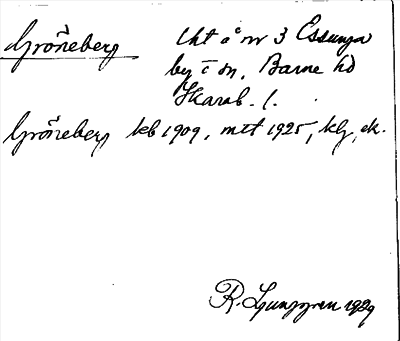 Gröneberg
Lht å nr 3 Essunga
by i sn, Barne hd
Skarab. l.
Gröneberg kb 1909, mtt 1925, klg, ek.
R. Ljunggren 1929